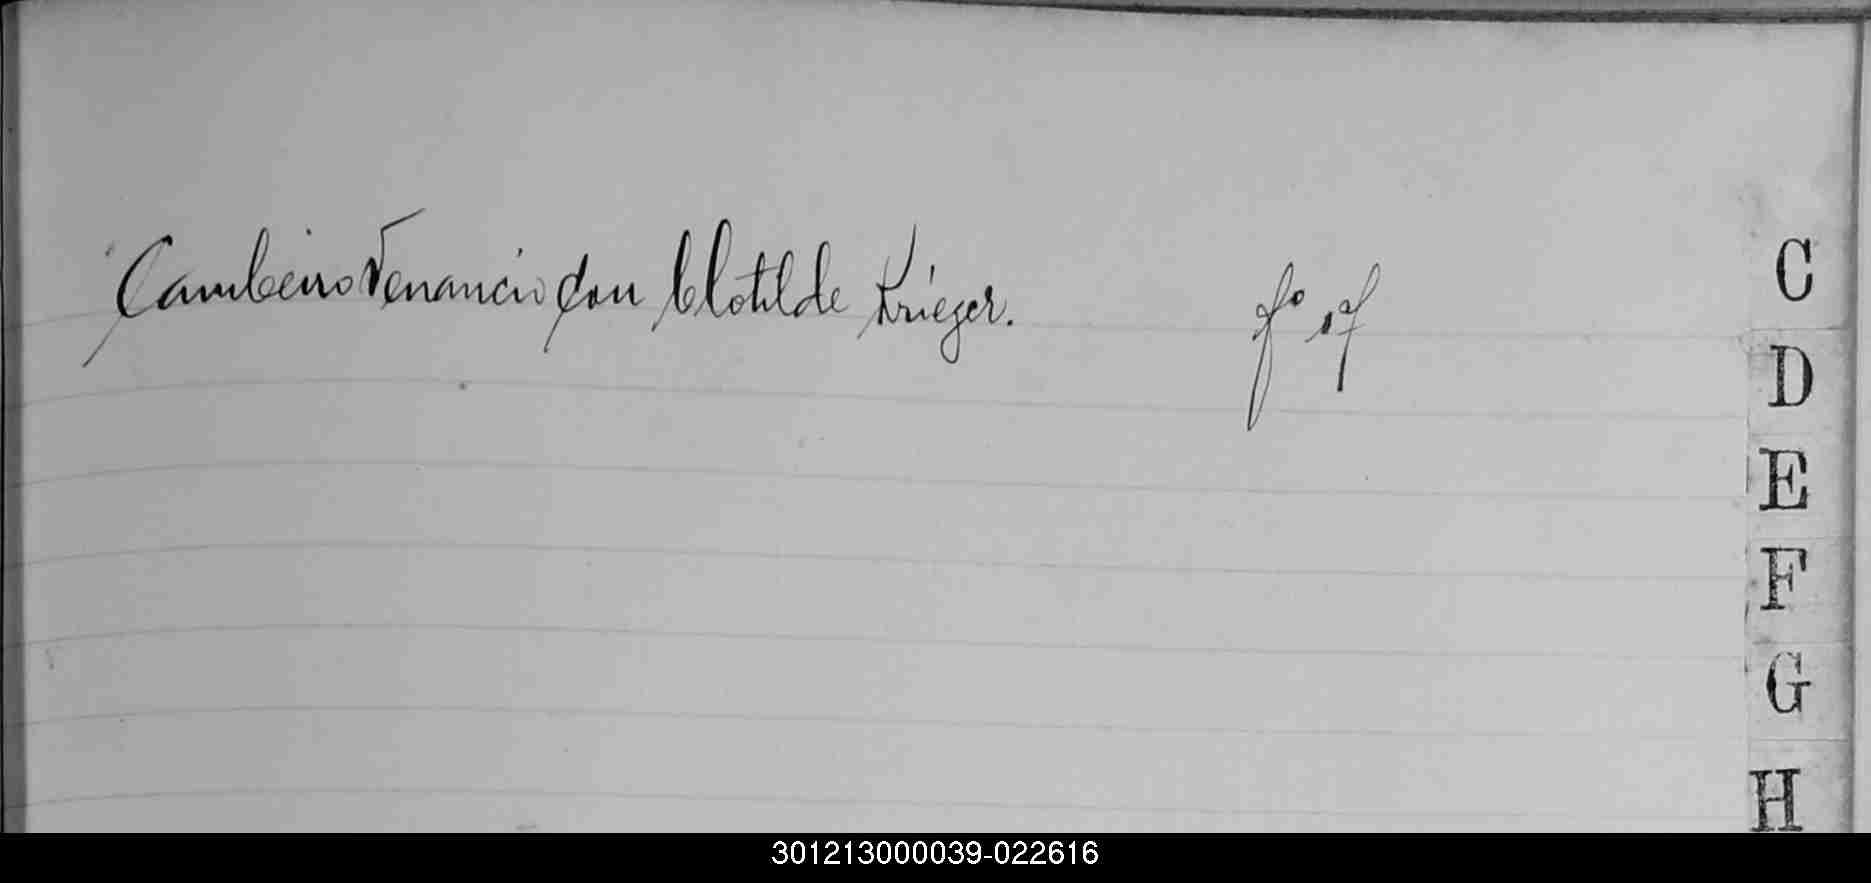 Cambeiro Venancio con Clotilde Krieger. fº 17
C
D
E
F
G
H
301213000039-022616